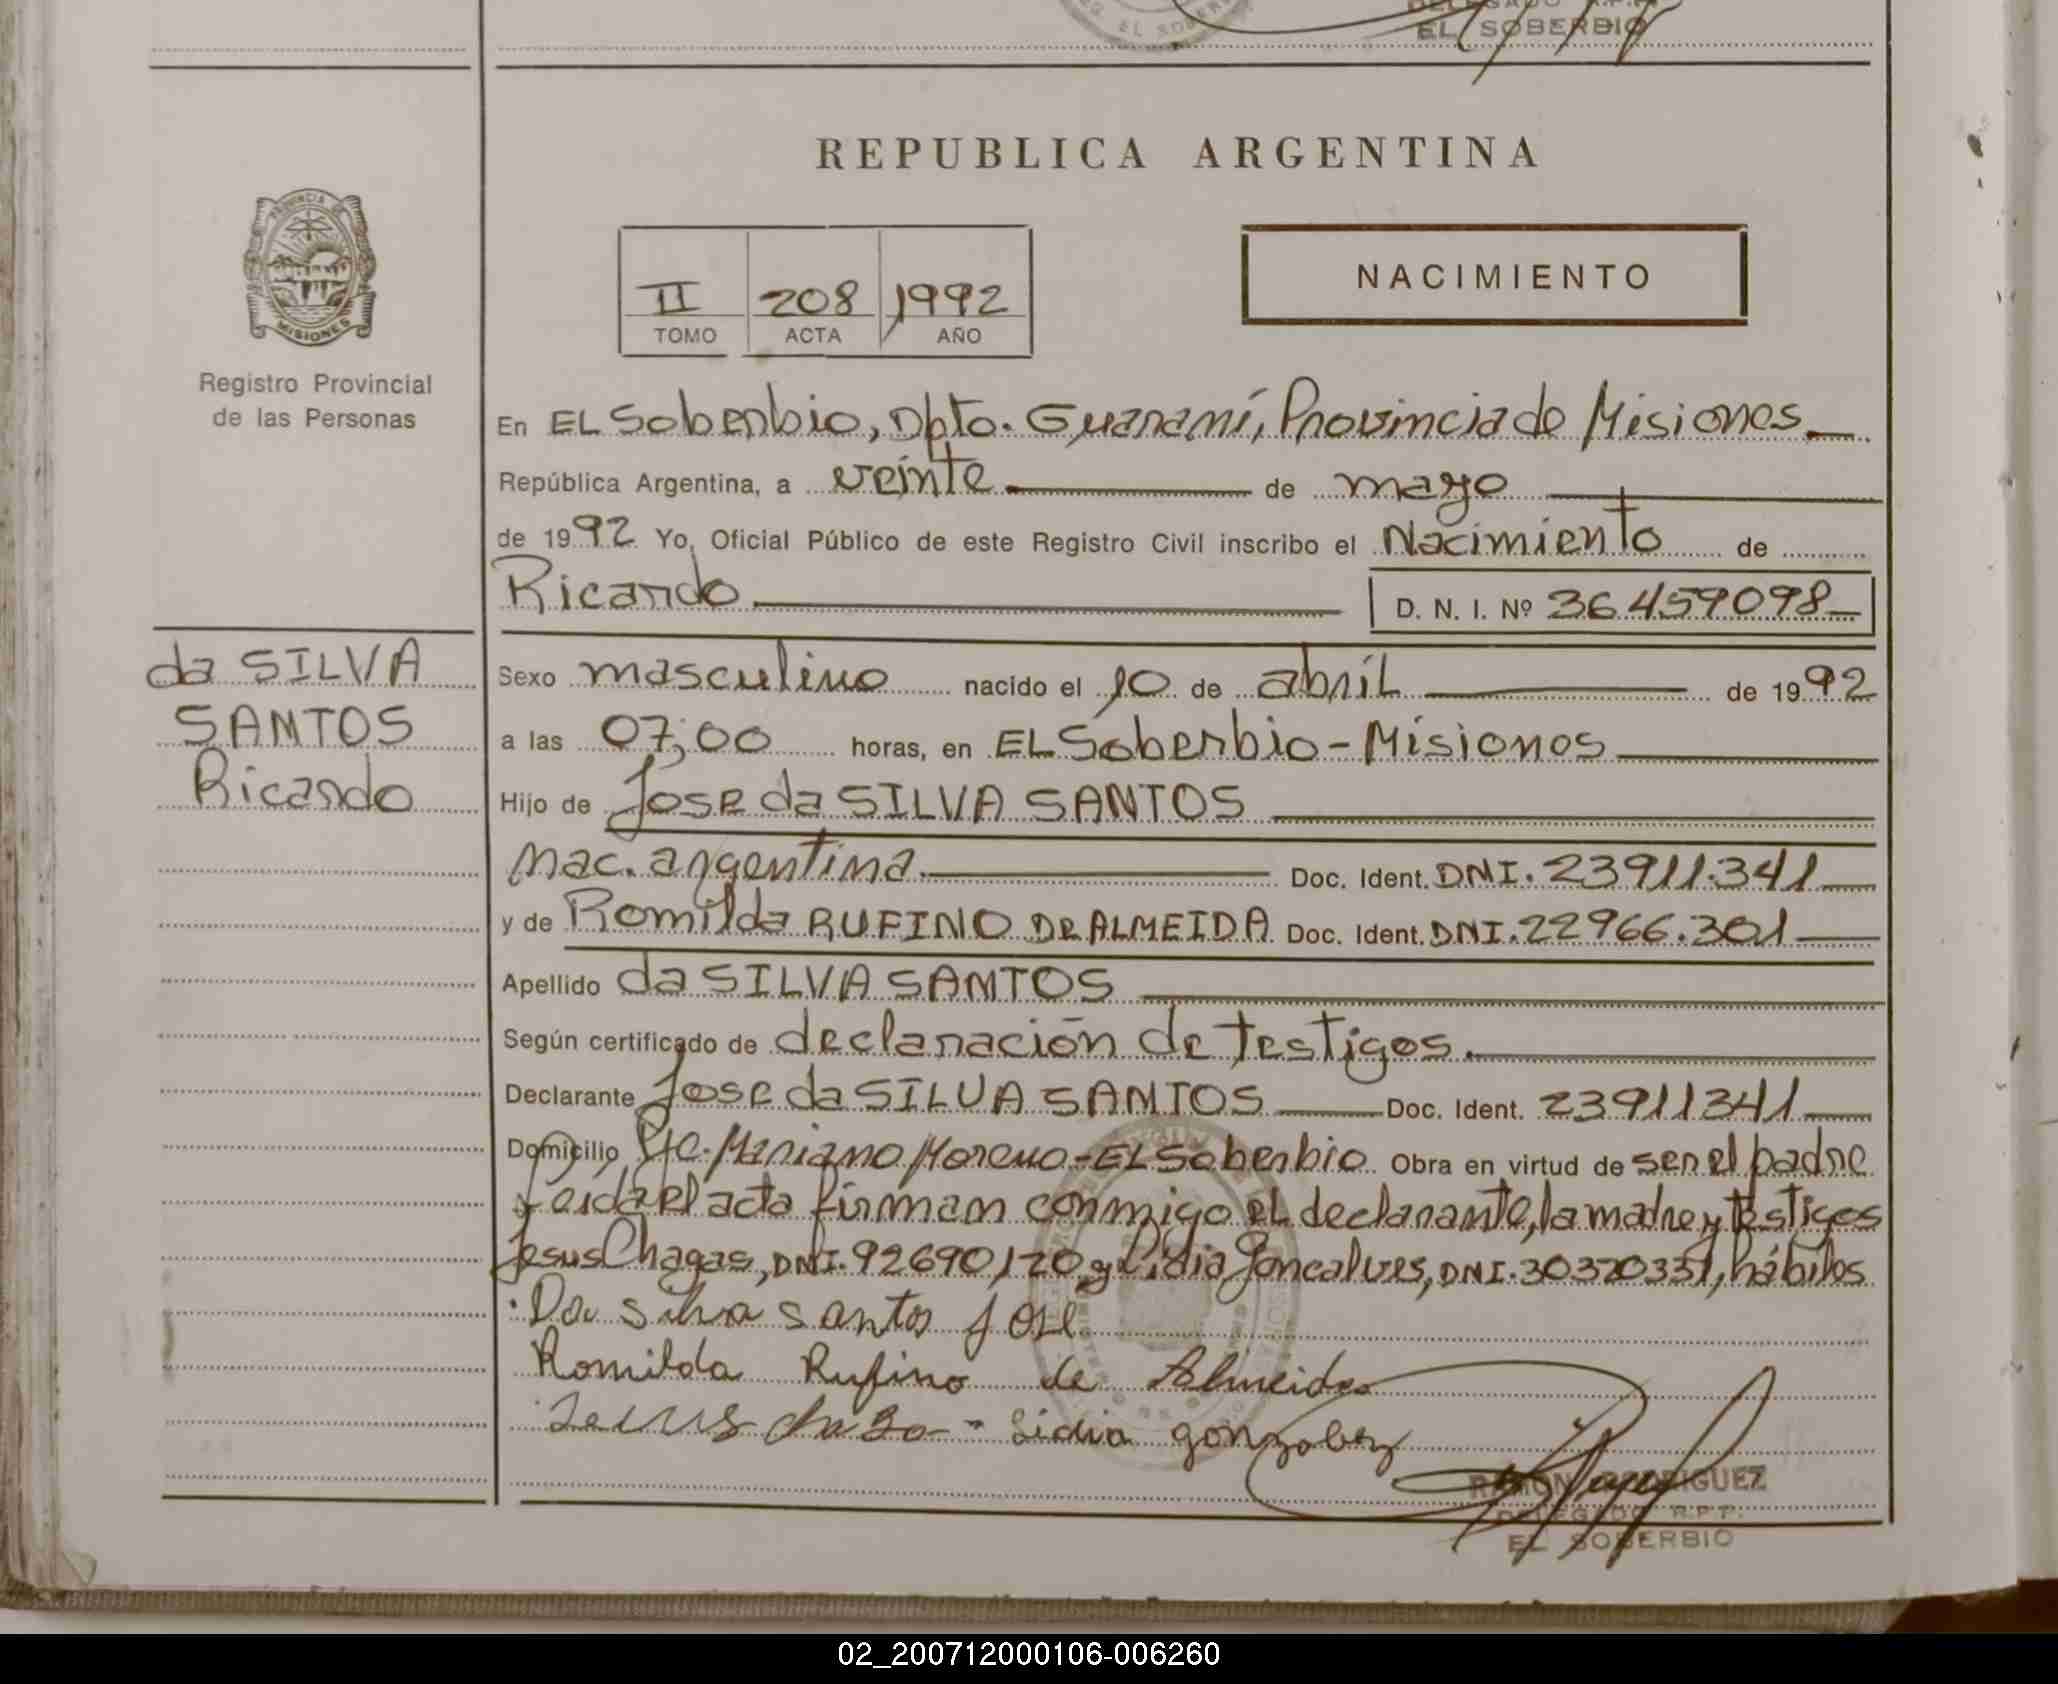 EL SOBERBIO
REPUBLICA ARGENTINA
PROVINCIA DE
MISIONES
II 208 1992
TOMO ACTA AÑO
NACIMIENTO
Registro Provincial
de las Personas
En EL Soberbio, Dpto. Guaraní, Provincia de Misiones
República Argentina, a veinte de mayo
de 1992 Yo, Oficial Público de este Registro Civil inscribo el Nacimiento de
Ricardo D. N. I. Nº 36.459098
da SILVA
SANTOS
Ricardo
Sexo masculino nacido el 10 de abril de 1992
a las 07,00 horas, en EL Soberbio - Misiones
Hijo de Jose da SILVA SANTOS
nac. argentina. Doc. Ident. DNI. 23911.341
y de Romilda RUFINO De ALMEIDA Doc. Ident. DNI. 22966.301
Apellido da SILVA SANTOS
Según certificado de declaración de testigos.
Declarante Jose da SILVA SANTOS Doc. Ident. 23911341
Domicilio Pje. Mariano Moreno - EL Soberbio Obra en virtud de ser el padre
Leida el acta firman conmigo el declarante, la madre y testigos
Jesus Chagas, DNI. 92690,120 y Lidia Goncalves, DNI. 30370351, hábiles
Da silva santos Jose
Romilda Rufino de Almeida
Lidia gonzalvez
RAMON RODRIGUEZ
DELEGADO R.P.P.
EL SOBERBIO
02_200712000106-006260